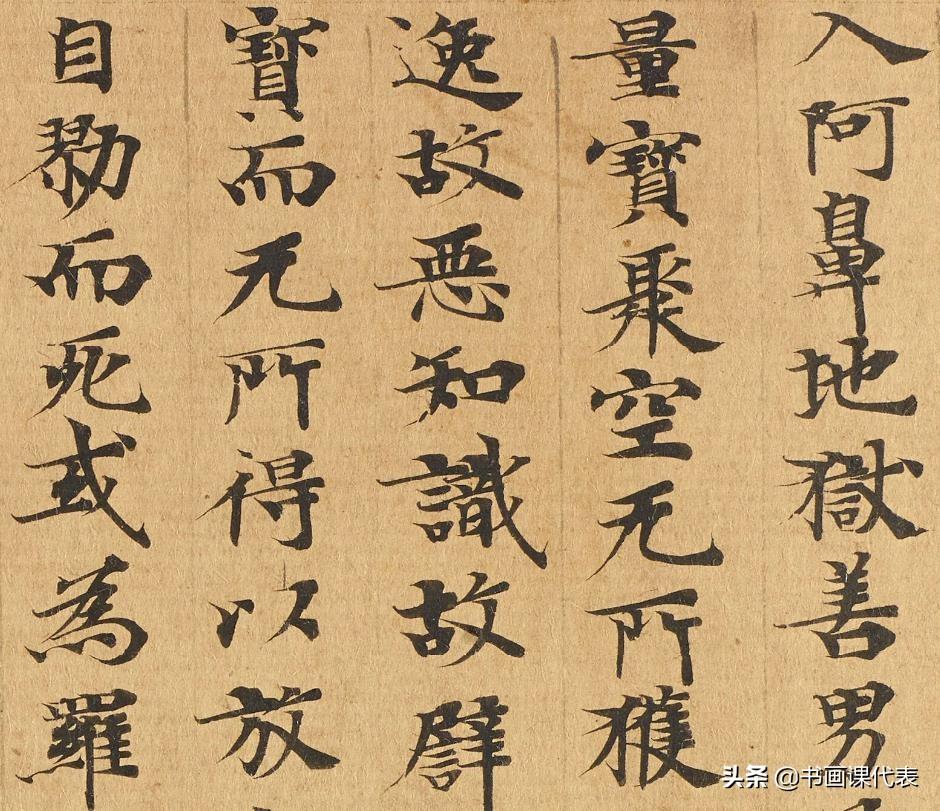 入阿鼻地獄善男
量寶聚空无所獲
逸故惡知識故譬
寶而无所得以放
自勠而死或為羅
头条 @书画课代表